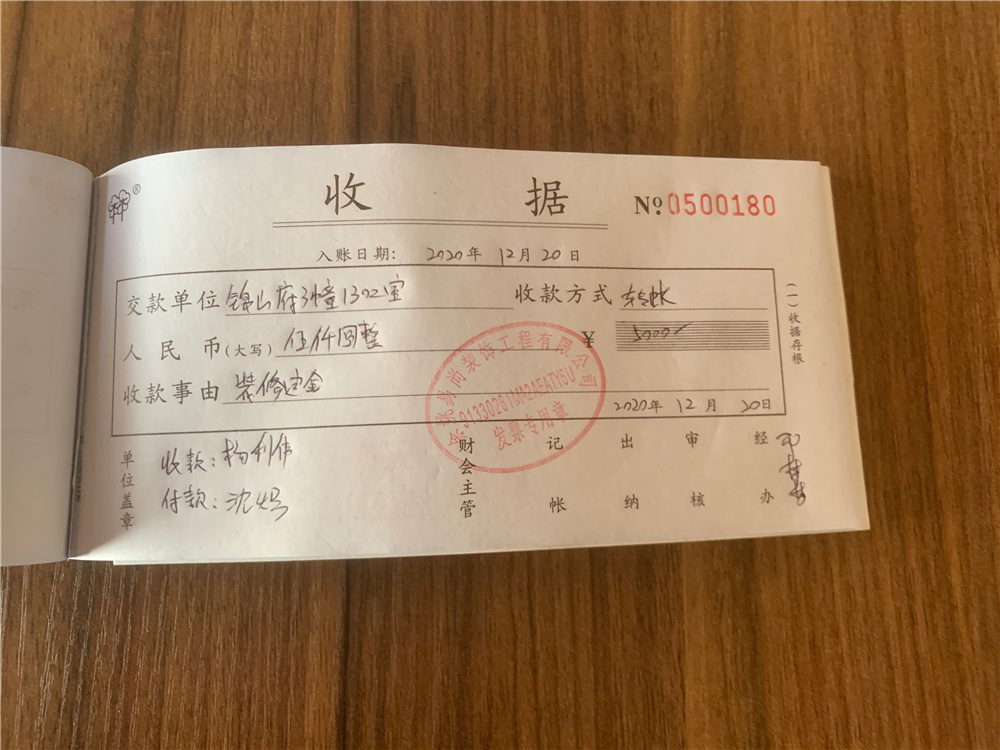 收 据 Nº 0500180
入账日期: 2020年 12月 20日
交款单位 锦山府3幢1302室 收款方式 转帐
人民币(大写) 伍仟圆整 ¥ 5000
收款事由 装修定金
2020年 12月 20日
(一)收据存根
易尚装饰工程有限公司
发票专用章
单位盖章
收款:杨利伟
付款:沈
财会主管
记帐
出纳
审核
经办